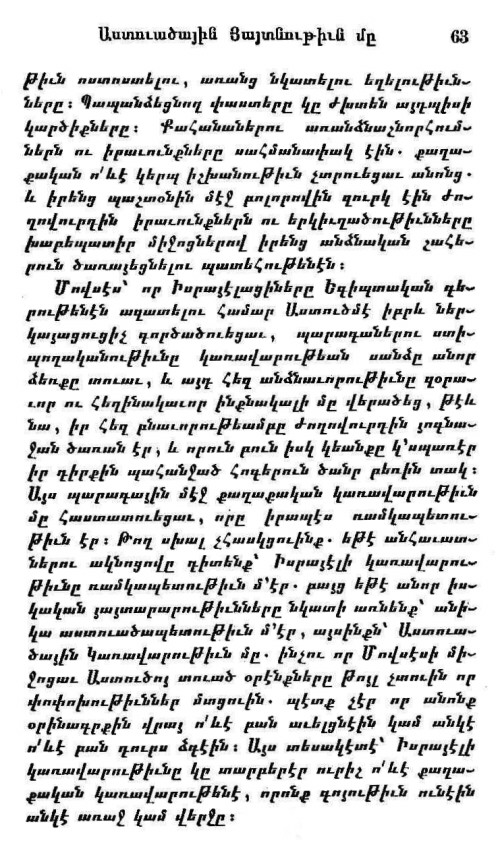 Աստուածային Յայտնութիւն մը 63
թիւն ոստոստելու, առանց նկատելու եղելութիւն-
ները։ Պապանձեցնող փաստերը կը ժխտեն այդպիսի
կարծիքները։ Քահանաներու առանձնաշնորհում-
ներն ու իրաւունքները սահմանափակ էին. քաղա-
քական ո՛ևէ կերպ իշխանութիւն չտրուեցաւ անոնց.
և իրենց պաշտօնին մէջ բոլորովին զուրկ էին ժո-
ղովուրդին իրաւունքներն ու երկիւղածութիւնները
խարեպատիր միջոցներով իրենց անձնական շահե-
րուն ծառայեցնելու պատեհութենէն։
Մովսէս՝ որ Իսրայէլացիները Եգիպտական գե-
րութենէն ազատելու համար Աստուծմէ իբրև ներ-
կայացուցիչ գործածուեցաւ, պարագաներու ստի-
պողականութիւնը կառավարութեան սանձը անոր
ձեռքը տուաւ, և այդ հեզ անձնաւորութիւնը զօրա-
ւոր ու հեղինակաւոր ինքնակալի մը վերածեց, թէև
նա, իր հեզ բնաւորութեամբը ժողովուրդին յոգնա-
ջան ծառան էր, և որուն բուն իսկ կեանքը կ՚սպառէր
իր դիրքին պահանջած հոգերուն ծանր բեռին տակ։
Այս պարագային մէջ քաղաքական կառավարութիւն
մը հաստատուեցաւ, որը իրապէս ռամկապետու-
թիւն էր։ Թող սխալ չհասկցուինք. եթէ անհաւատ-
ներու ակնոցովը դիտենք՝ Իսրայէլի կառավարու-
թիւնը ռամկապետութիւն մ՚էր. բայց եթէ անոր իս-
կական յայտարարութիւնները նկատի առնենք՝ անի-
կա աստուածապետութիւն մ՚էր, այսինքն՝ Աստուա-
ծային Կառավարութիւն մը. ինչու որ Մովսէսի մի-
ջոցաւ Աստուծոյ տուած օրէնքները թոյլ չտուին որ
փոփոխութիւններ մտցուին. պէտք չէր որ անոնք
օրինագրքին վրայ ո՛ևէ բան աւելցնէին կամ անկէ
ո՛ևէ բան դուրս ձգէին։ Այս տեսակէտէ՝ Իսրայէլի
կառավարութիւնը կը տարբերէր ուրիշ ո՛ևէ քաղա-
քական կառավարութենէ, որոնք գոյութիւն ունէին
անկէ առաջ կամ վերջը։